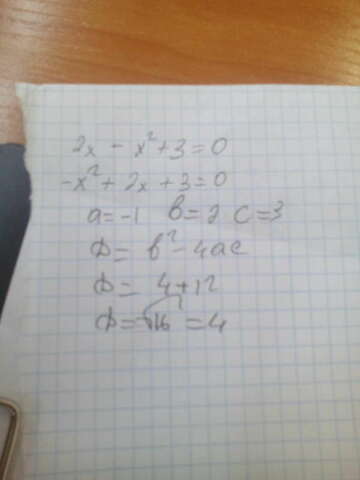 2x - x² + 3 = 0
-x² + 2x + 3 = 0
a = -1 b = 2 c = 3
D = b² - 4ac
D = 4 + 12
D = √16 = 4